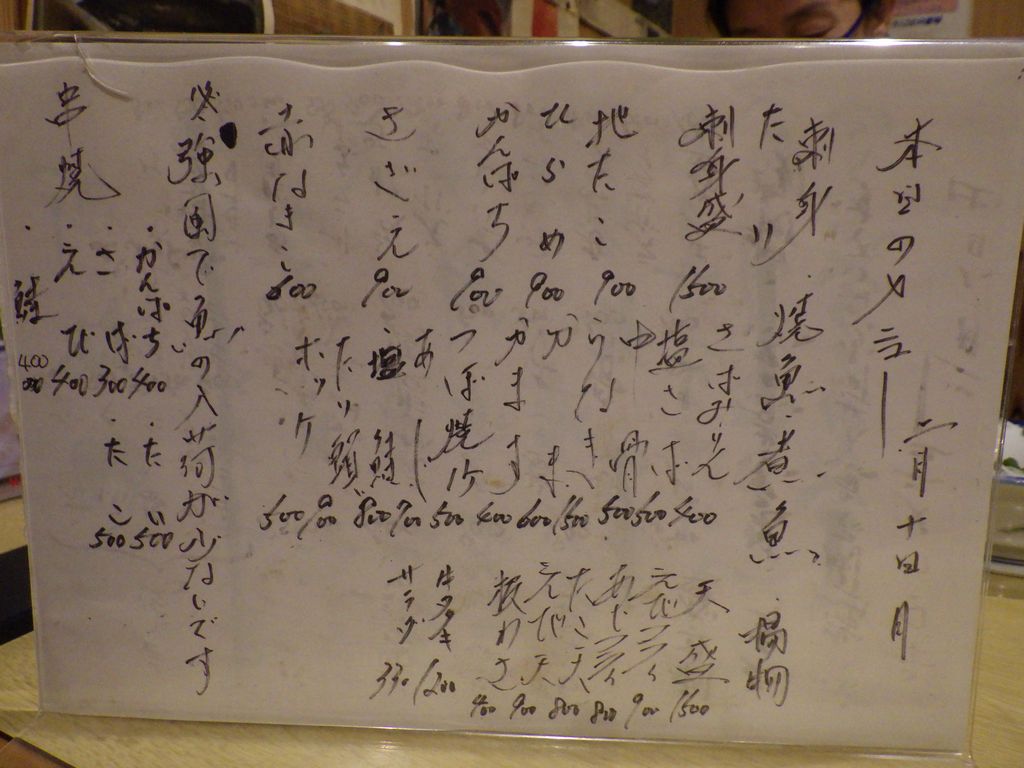 本日のメニュー 二月十日 月
刺身
刺身盛 1500
地たこ 900
ひらめ 900
かんぱち 900
さざえ 900
赤はま 600
焼魚・煮魚
さばみりん 400
塩さば 500
中骨 500
かま 600
かます 400
つぼ焼 500
あじ 700
塩鮭 800
たい頭 900
ホッケ 500
揚物
天盛 1500
えびフライ 900
あじフライ 800
たこ天 800
えび天 900
板わさ 400
牛タタキ 1200
サラダ 330
※強風で魚の入荷が少ないです
串焼
・かんぱち 400
・さば 300
・えび 400
・鮭 400
・たい 500
・たこ 500